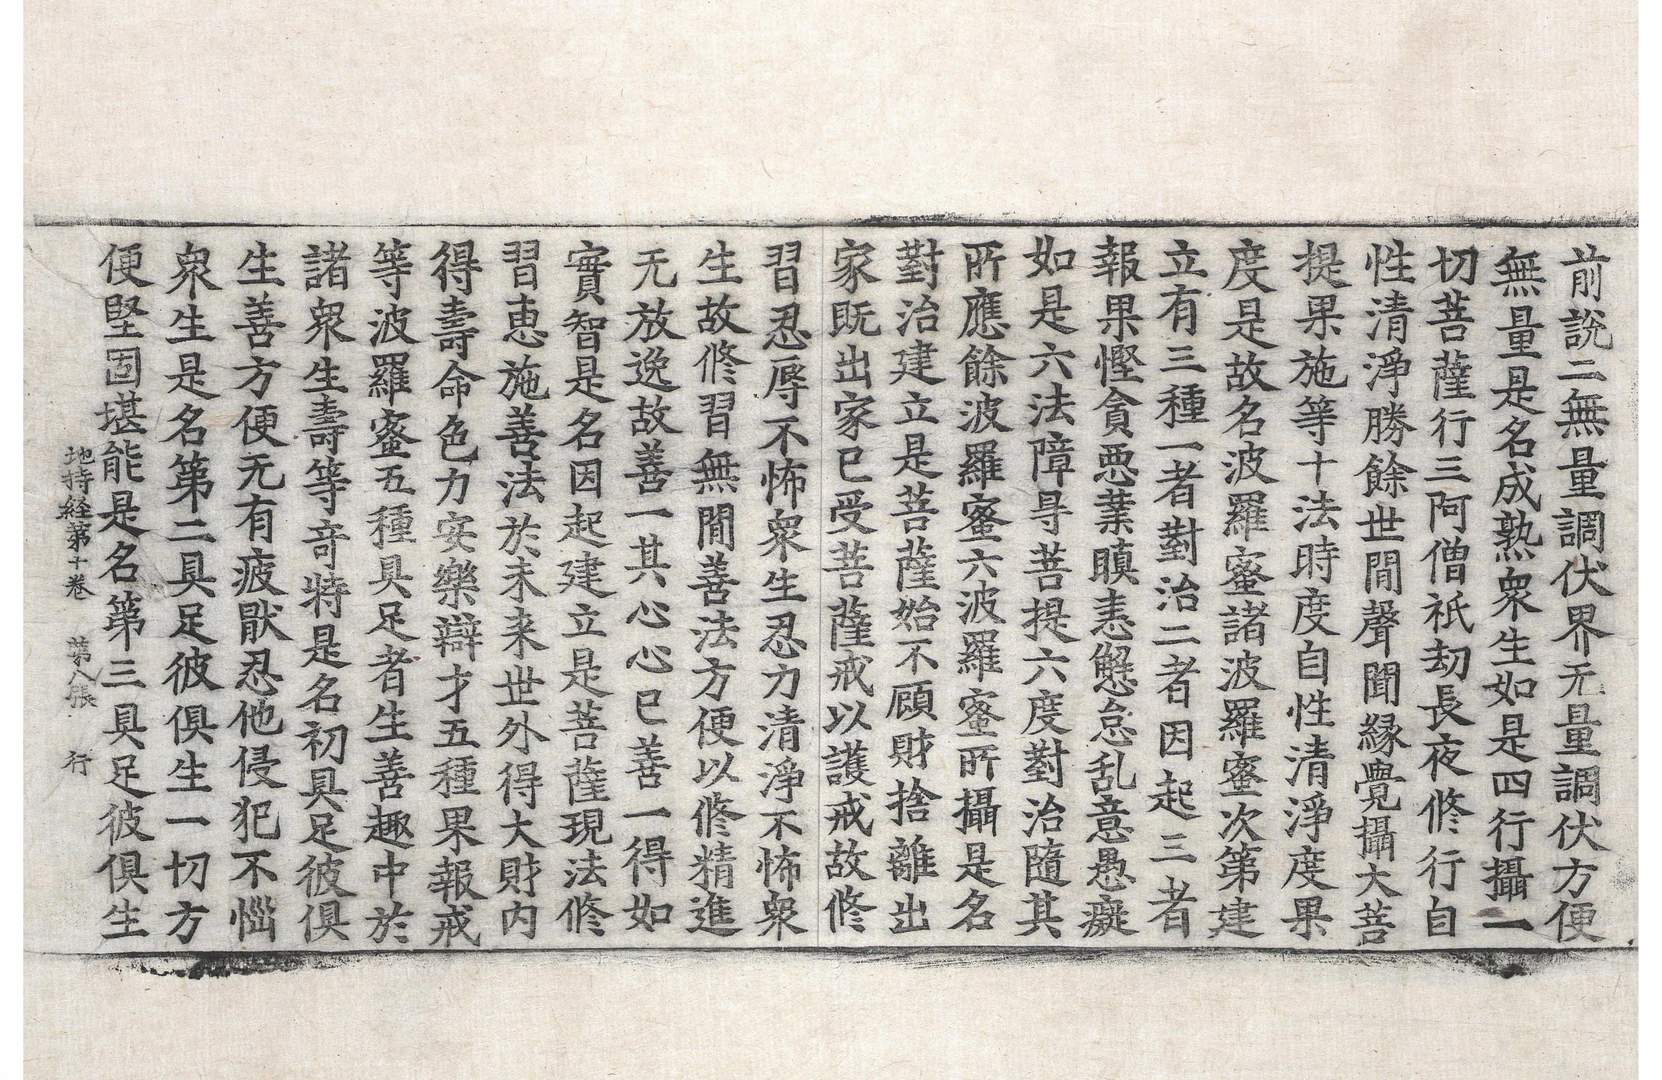 前說二無量調伏界无量調伏方便
無量是名成熟衆生如是四行攝一
切菩薩行三阿僧祇劫長夜修行自
性清淨勝餘世間聲聞縁覺攝大菩
提果施等十法時度自性清淨度果
度是故名波羅蜜諸波羅蜜次第建
立有三種一者對治二者因起三者
報果慳貪惡業瞋恚懈怠乱意愚癡
如是六法障㝵菩提六度對治隨其
所應餘波羅蜜六波羅蜜所攝是名
對治建立是菩薩始不顧財捨離出
家既出家已受菩薩戒以護戒故修
習忍辱不怖衆生忍力清淨不怖衆
生故修習無間善法方便以修精進
无放逸故善一其心心已善一得如
實智是名因起建立是菩薩現法修
習恵施善法於未来世外得大財内
得壽命色力安樂辯才五種果報戒
等波羅蜜五種具足者生善趣中於
諸衆生壽等竒特是名初具足彼俱
生善方便无有疲猒忍他侵犯不惱
衆生是名第二具足彼俱生一切方
便堅固堪能是名第三具足彼俱生
地持経第十卷 第八張 行